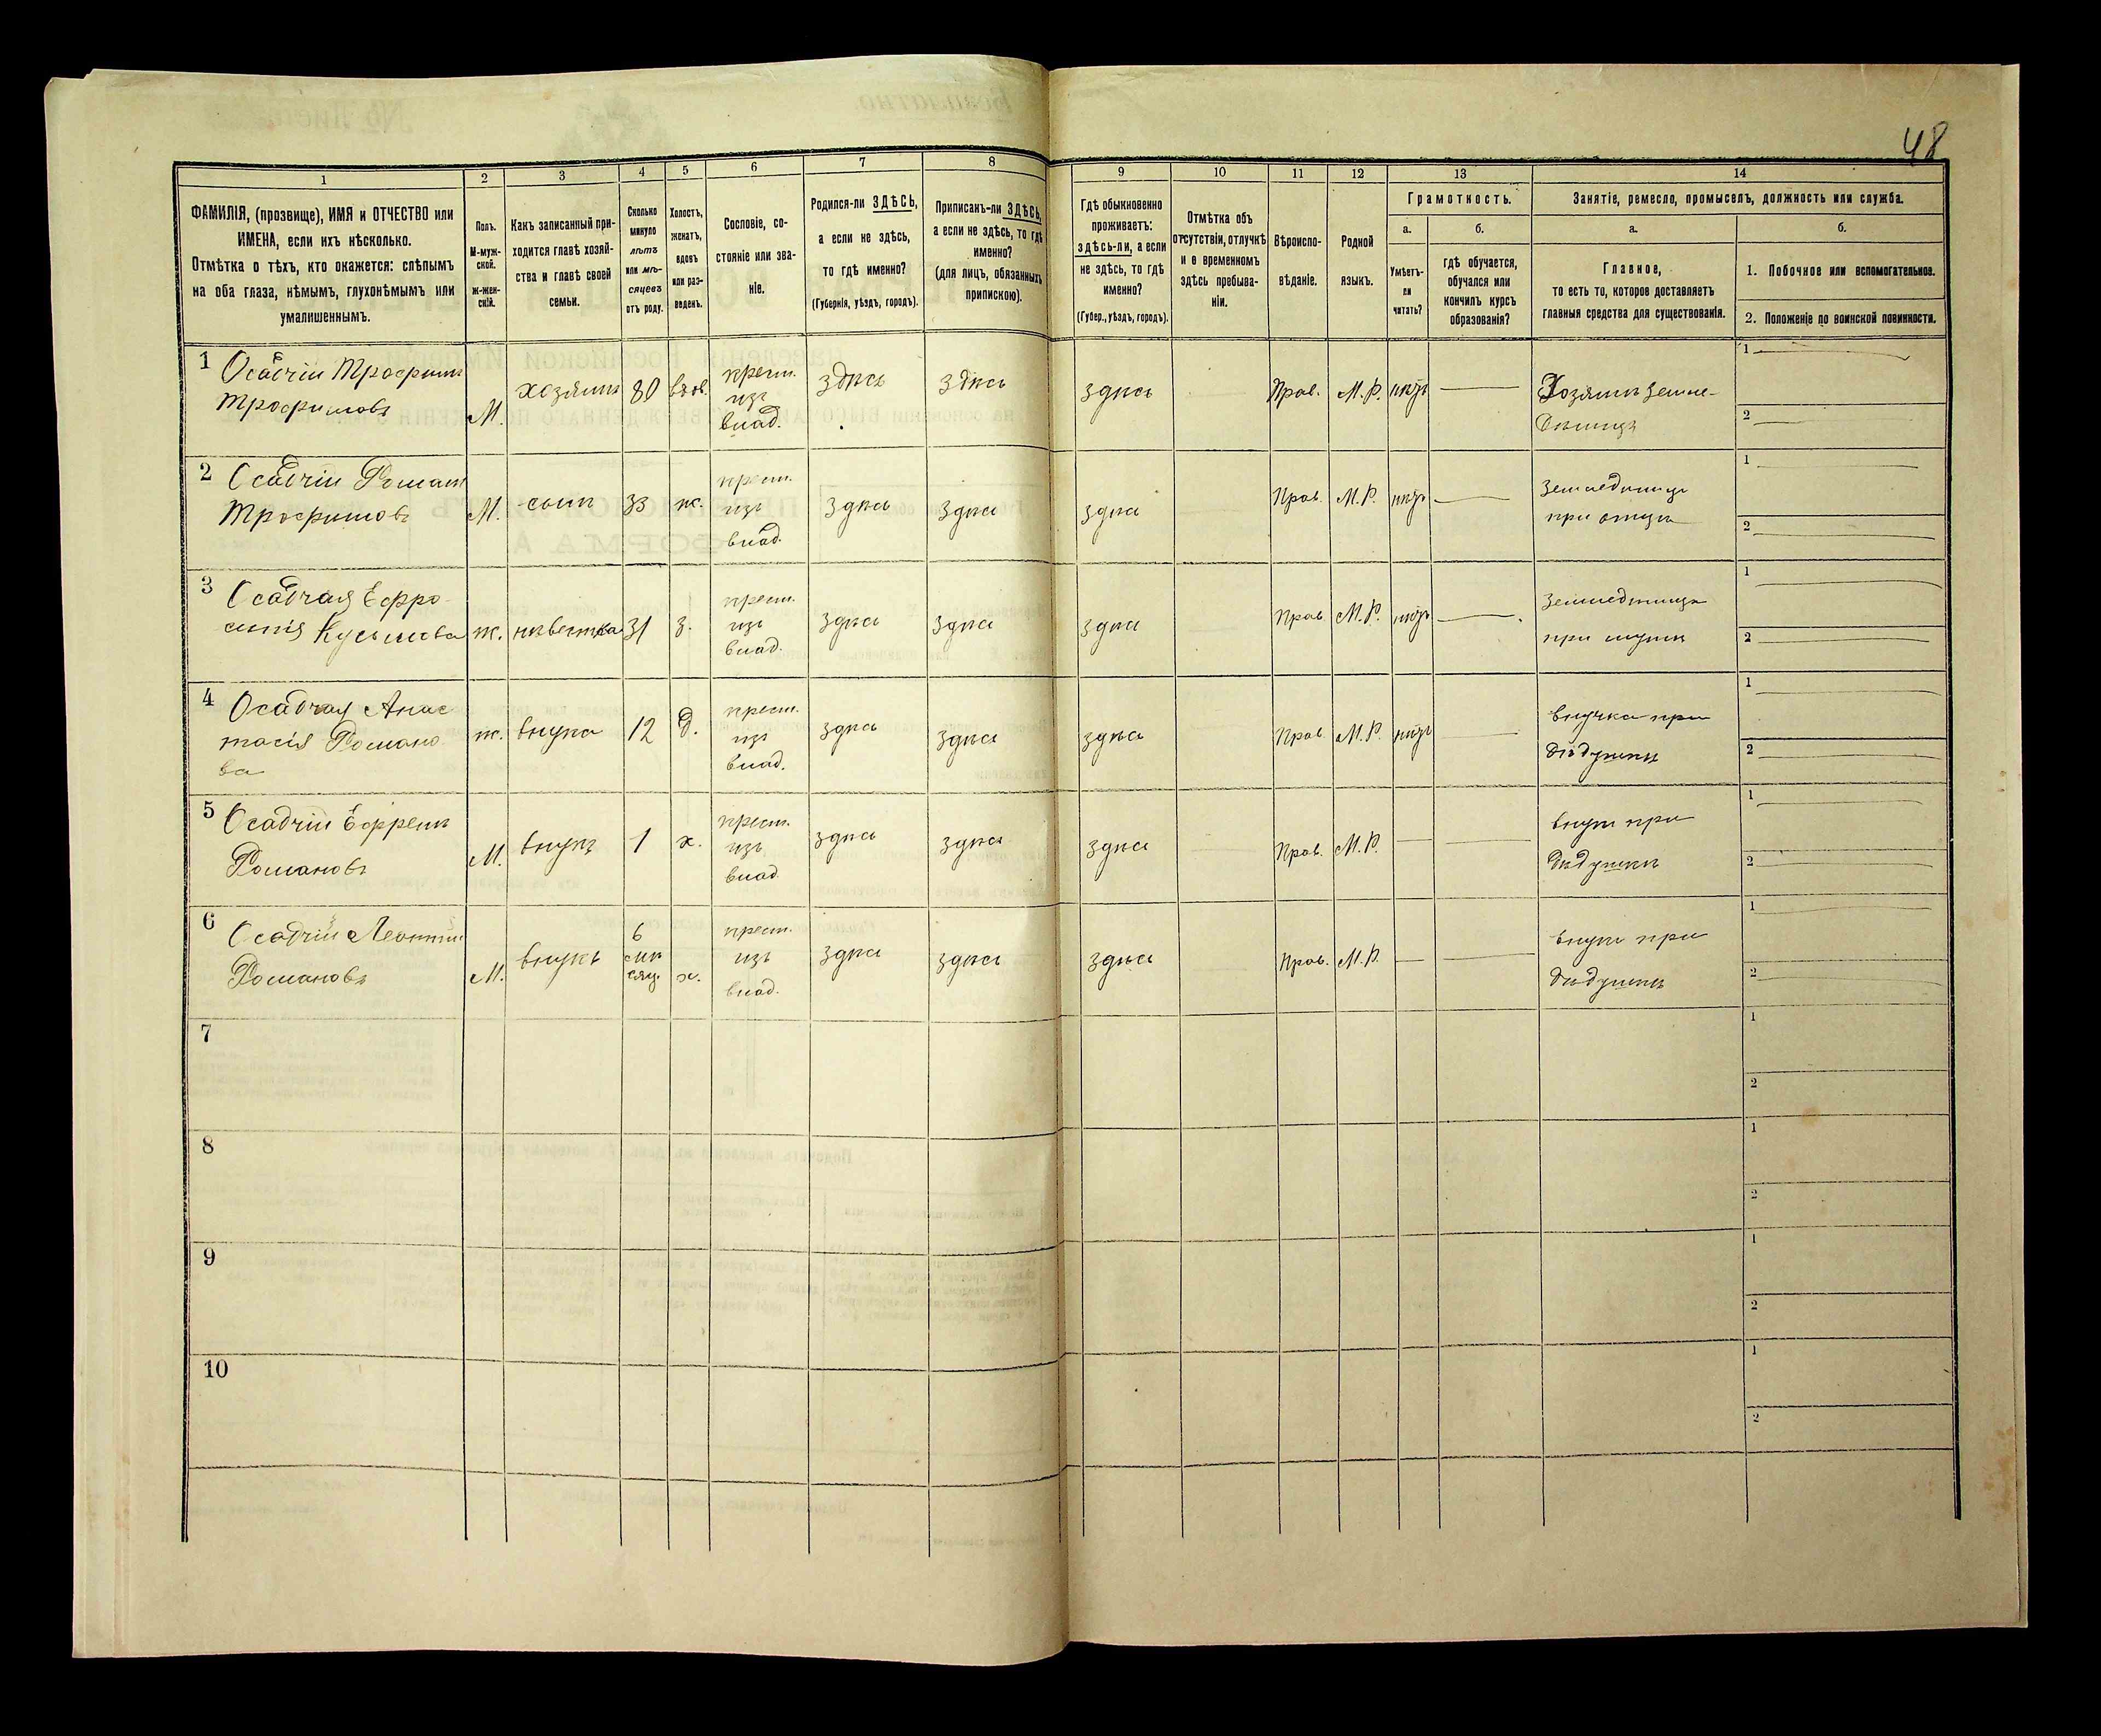 48
1 2 3 4 5 6 7 8 9 10 11 12 13 14
ФАМИЛІЯ, (прозвище), ИМЯ и ОТЧЕСТВО или
ИМЕНА, если ихъ нѣсколько.
Отмѣтка о тѣхъ, кто окажется: слѣпымъ
на оба глаза, нѣмымъ, глухонѣмымъ или
умалишеннымъ.
Полъ.
М-муж-
ской.
Ж-жен-
скій.
Какъ записанный при-
ходится главѣ хозяй-
ства и главѣ своей
семьи.
Сколько
минуло
лѣтъ
или мѣ-
сяцевъ
отъ роду.
Холостъ,
женатъ,
вдовъ
или раз-
веденъ.
Сословіе, со-
стояніе или зва-
ніе.
Родился-ли ЗДѢСЬ,
а если не здѣсь,
то гдѣ именно?
(Губернія, уѣздъ, городъ).
Приписанъ-ли ЗДѢСЬ,
а если не здѣсь, то гдѣ
именно?
(для лицъ, обязанныхъ
припискою).
Гдѣ обыкновенно
проживаетъ:
здѣсь-ли, а если
не здѣсь, то гдѣ
именно?
(Губер., уѣздъ, городъ).
Отмѣтка объ
отсутствіи, отлучкѣ
и о временномъ
здѣсь пребыва-
ніи.
Вѣроиспо-
вѣданіе.
Родной
языкъ.
Грамотность.
а.
Умѣетъ-
ли
читать?
б.
гдѣ обучается,
обучался или
кончилъ курсъ
образованія?
Занятіе, ремесло, промыселъ, должность или служба.
а.
Главное,
то есть то, которое доставляетъ
главныя средства для существованія.
б.
1. Побочное или вспомогательное.
2. Положеніе по воинской повинности.
1 Осадчій Трофимъ
Трофимовъ
М. хозяинъ 80 вдов. крест.
изъ
влад.
здѣсь здѣсь здѣсь Прав. М.Р. нѣтъ
Хозяинъ земле-
дѣлецъ
1
2
2 Осадчій Романъ
Трофимовъ
М. сынъ 33 ж. крест.
изъ
влад.
здѣсь здѣсь здѣсь Прав. М.Р. нѣтъ
земледѣлецъ
при отцѣ
1
2
3 Осадчая Ефро
синія Кузьмова
ж. невѣстка 31 з. крест.
изъ
влад.
здѣсь здѣсь здѣсь Прав М.Р. нѣтъ
земледѣлица
при мужѣ
1
2
4 Осадчая Анас
тасія Романо
ва
ж. внука 12 д. крест.
изъ
влад.
здѣсь здѣсь здѣсь Прав М.Р. нѣтъ
внучка при
дѣдушкѣ
1
2
5 Осадчій Ефремъ
Романовъ
М. внукъ 1 х. крест.
изъ
влад
здѣсь здѣсь здѣсь Прав. М.Р.
внукъ при
дѣдушкѣ
1
2
6 Осадчій Леонтій
Романовъ
М. внукъ 6
мѣ
сяц. х. крест.
изъ
влад.
здѣсь здѣсь здѣсь Прав. М.Р.
внукъ при
дѣдушкѣ
1
2
7
1
2
8
1
2
9
1
2
10
1
2